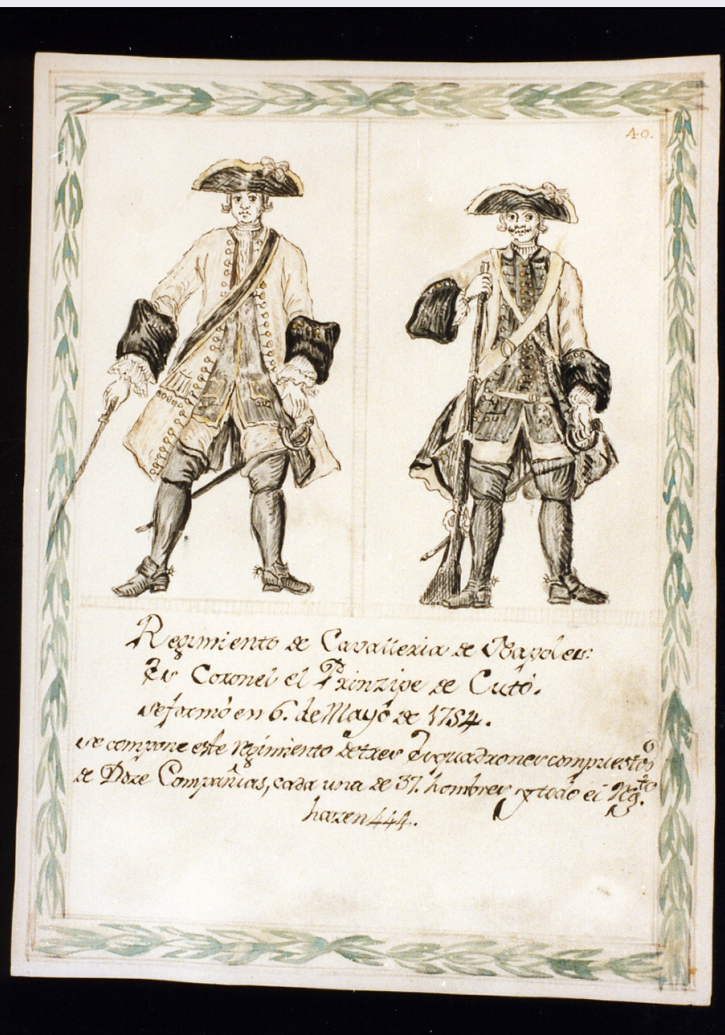 40.
Regimiento de Cavalleria de Napoles:
Es Coronel el Prinzipe de Cutó.
se formó en 6. de Mayo de 1734.
se compone este regimiento de tres Esquadrones compuestos
de Doze Compañias, cada una de 37. hombres y todo el Rg.to
hazen 444.